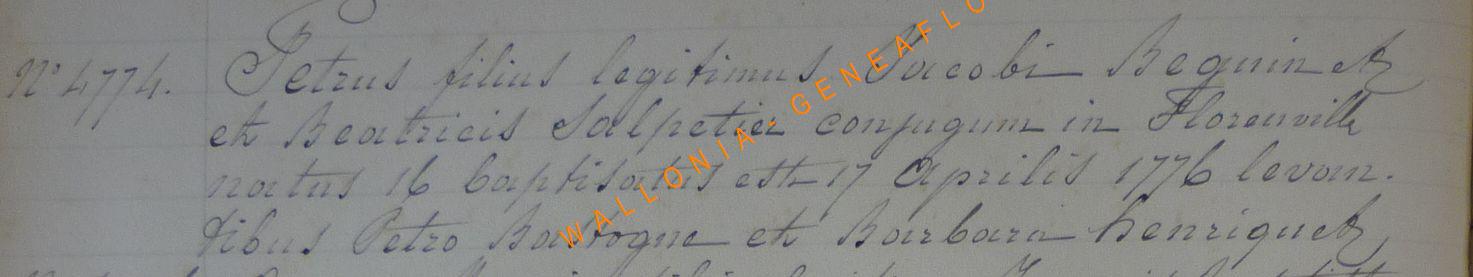 N° 4774. Petrus filius legitimus Jacobi Bequinet
et Beatricis Salpetier conjugum in Florenville
natus 16 baptisatus est 17 Aprilis 1776 levan.
tibus Petro Bastogne et Barbara henriquet,
WALLONIA-GENEAFLO